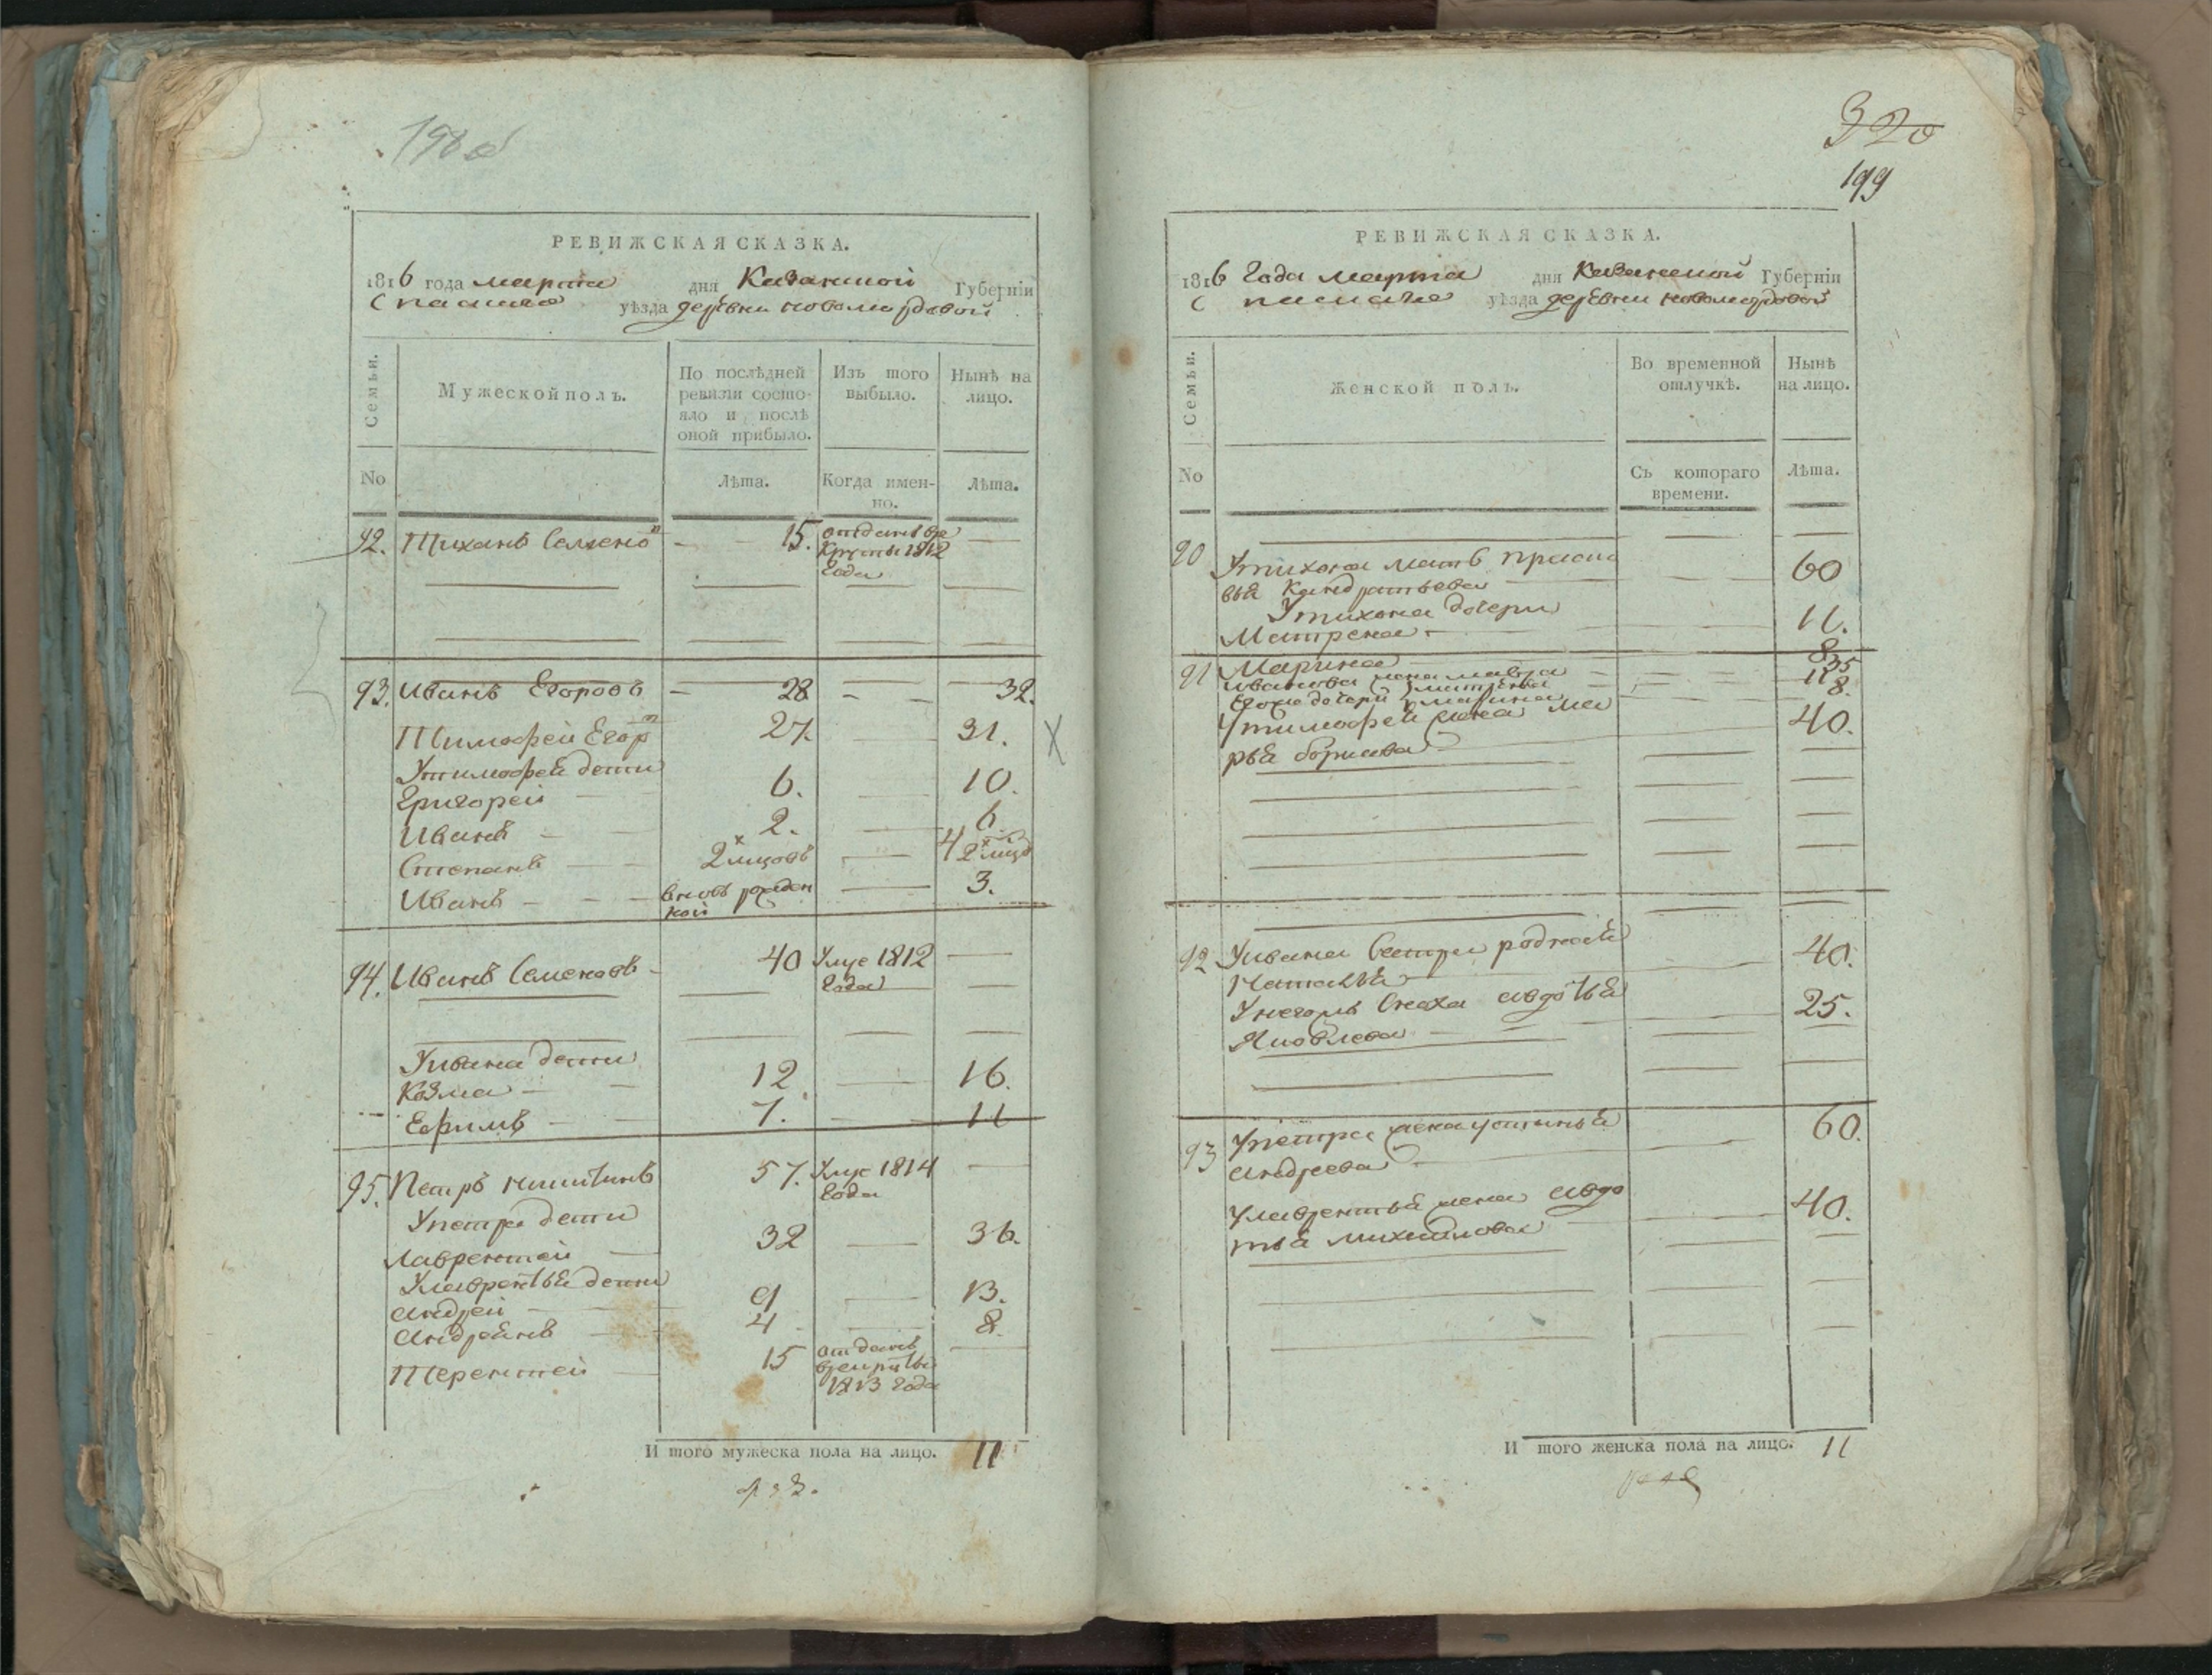 198 об
РЕВИЖСКАЯ СКАЗКА.
1816 года марта дня Казанской Губерніи
Спаскаго уѣзда деревни новомордовой
Семьи.
Мужеской полъ.
По послѣдней ревизіи состояло и послѣ оной прибыло.
Изъ того выбыло.
Нынѣ на лицо.
No
Лѣта.
Когда имен-
но.
Лѣта.
92. Тиханъ Семенов 15. отданъ вре
круты 1812
года
93. Иванъ Егоровъ 28 32.
Тимофей Егор 27. 31.
Утимофея дети
Григорей 6. 10.
Иванъ 2. 6
Степанъ 2 мцовъ 4 2 мцов
Иванъ вновь рожден 3.
ной
94. Иванъ Семеновъ 40 Умре 1812
года
Уивана дети
Козма 12 16.
Ефимъ 7. 11
95. Петръ никитинъ 57. Умре 1814
года
Упетра дети
Лаврентей 32 36.
Улаврентья дети
Андрей 9 13.
Андреянъ 4 8.
Терентей 15 отданъ
врекруты
1813 года
И того мужеска пола на лицо. 11
320
199
РЕВИЖСКАЯ СКАЗКА.
1816 года марта дня Казанской Губерніи
Спаскаго уѣзда деревни новомордовой
Семьи.
Женской полъ.
Во временной
отлучкѣ.
Нынѣ
на лицо.
No
Съ котораго
времени.
Лѣта.
90 Утихона мать праско
вья Кандратьева 60
Утихона дочери
Матрена 11.
Марина 8
91 Иванова жена мавра 35
Егоже дочери матрена 11
марина 8.
Утимофея жена ма 40.
рья борисова
92 Уивана Сестра родная 40.
Наталья
Унегожъ Сноха авдотья 25.
Яковлева
93 Упетра жена устинья 60.
андреева
Улаврентья жена авдо 40.
тья михайлова
И того женска пола на лицо. 11